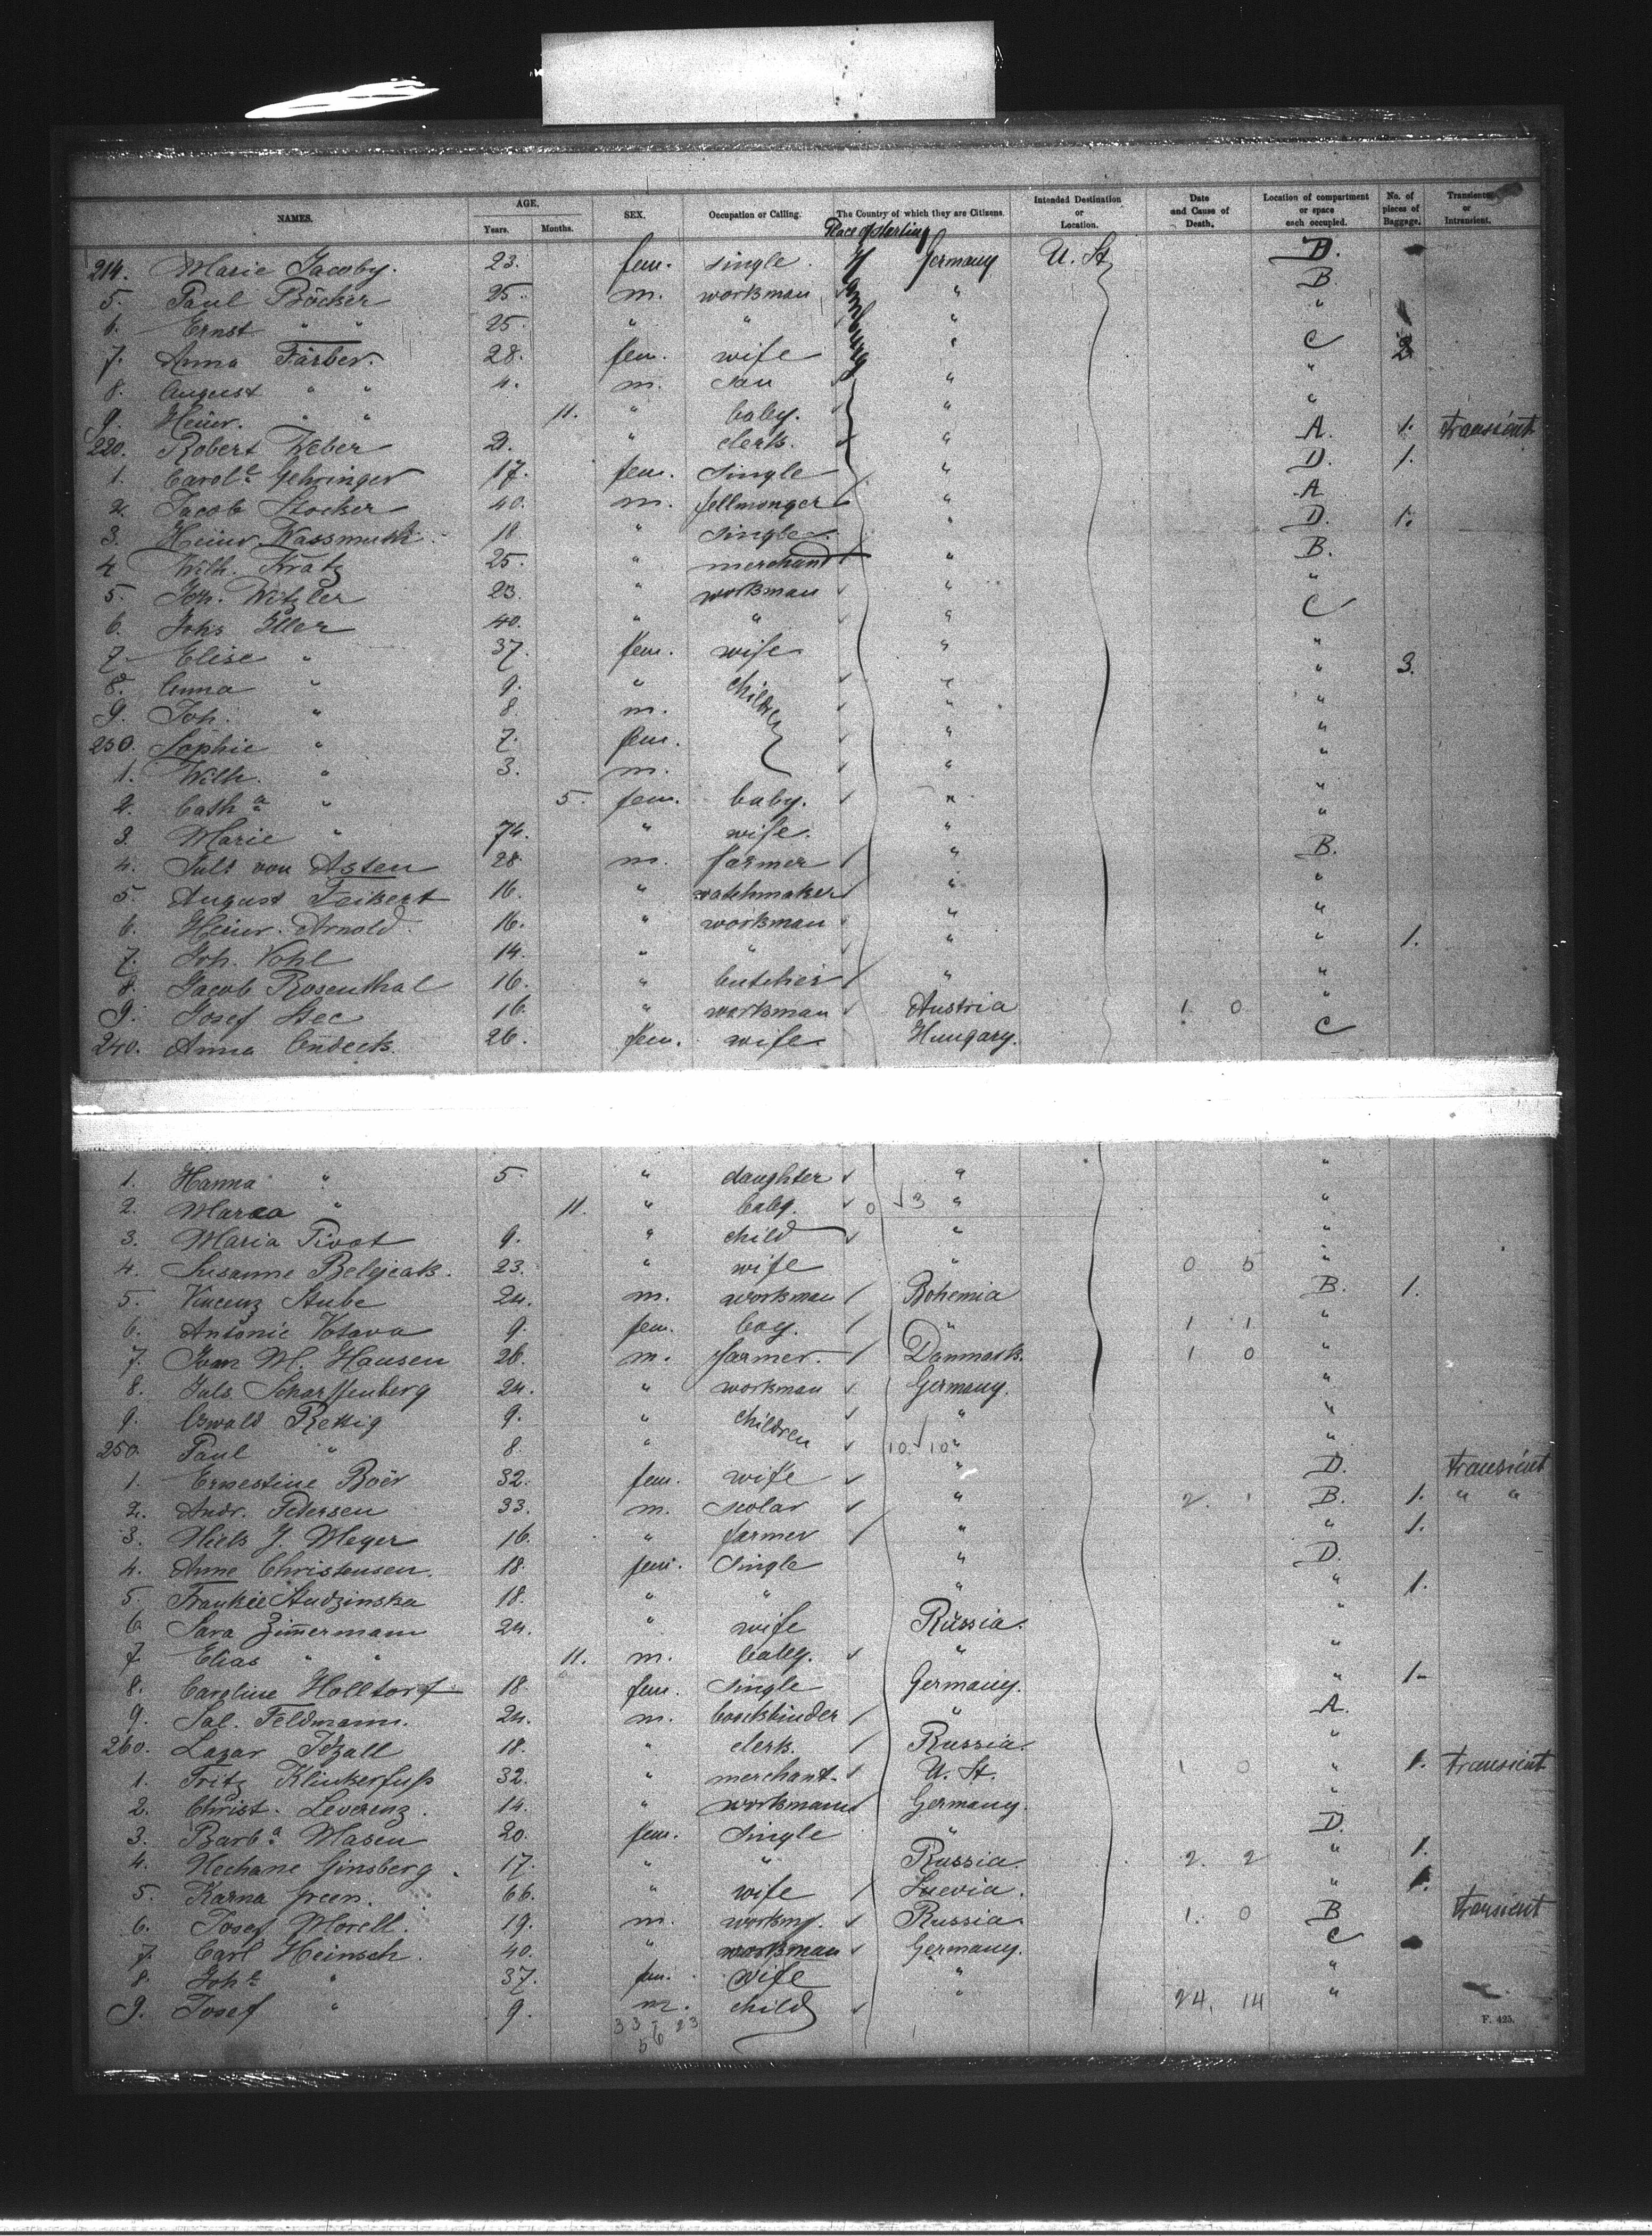 NAMES. AGE. Years. Months. SEX. Occupation or Calling. The Country of which they are Citizens. Intended Destination or Location. Date and Cause of Death. Location of compartment or space each occupied. No. of pieces of Baggage. Transients or Intransient.
Place of sterling
Hamburg
214. Marie Jacoby. 23. fem. single. Germany U. St. D.
5. Paul Böcker 25. m. workman " B.
6. Ernst " " 25. " " " "
7. Anna Färber. 28. fem. wife " C 2
8. August " " 4. m. son " "
9. Heinr. " " 11. " baby. " "
220. Robert Weber 21. " clerk. " A. 1. transient
1. Carol.e Gehringer 17. fem. single " D. 1.
2. Jacob Stocker 40. m. fellmonger " A
3. Heinr. Wassmuth 18 " single. " D. 1.
4. Wilh. Kratz 25. " merchand " B.
5. Joh. Witzler 23. " workman " "
6. Johs Iller 40. " " " C
7. Elise " 37. fem. wife " "
8. Anna " 9. " children " " 3.
9. Joh. " 8. m. " "
230. Sophie " 7. fem. " "
1. Wilh. " 3. m. " "
2. Cath.a " 5. fem. baby. " "
3. Marie " 74. " wife. " "
4. Juls von Asten 28. m. farmer " B.
5. August Feikert 16. " watchmaker " "
6. Heinr. Arnold 16. " workman " "
7. Joh. Vohl 14. " " " " 1.
8. Jacob Rosenthal 16. " butcher " "
9. Josef Stec 16. " workman Austria 1. 0 "
240. Anna Endeck. 26. fem. wife Hungary. C
1. Hanna " 5. " daughter " "
2. Marca " 11. " baby. 0 3 " "
3. Maria Pivot 9. " child " "
4. Susanne Belejcak. 23. " wife " 0 5 "
5. Vincenz Stube 24. m. workman Bohemia B. 1.
6. Antonie Votava 9. fem. boy. " 1 1 "
7. Iven M. Hansen 26. m. farmer. Danmark. 1 0 "
8. Juls Scharffenberg 24. " workman Germany. "
9. Oswald Rettig 9. " children " "
250. Paul " 8. " 10 10 " "
1. Ernestine Boër 32. fem. wife " D. transient
2. Andr. Petersen 33. m. scolar " 2. 1 B. 1. " "
3. Niels J. Meyer 16. " farmer " " 1.
4. Anne Christensen. 18. fem. single " D.
5. Frankie Studzinska 18. " " " " 1.
6. Sara Zimmermann 24. " wife Russia. "
7. Elias " " 11. m. baby. " "
8. Caroline Holltorf 18. fem. single Germany. " 1.
9. Sal. Feldmann. 24. m. bookbinder " A.
260. Lazar Tözall 18. " clerk. Russia. "
1. Fritz Klinkerfuss 32. " merchant. U. St. 1 0 " 1. transient
2. Christ. Leverenz. 14. " workmann Germany. "
3. Barb.a Masen 20. fem. single " D.
4. Nechane Ginsberg. 17. " " Russia. 2. 2 " 1.
5. Karna Green. 66. " wife Suevia. " 1.
6. Josef Morell. 19. m. workmg. Russia 1. 0 B transient
7. Carl Heinsch. 40. " workman Germany. C
8. Joh.e " 37. fem. wife " "
9. Josef " 9. m. child " 24. 14 "
33 - 23
56
F. 425.